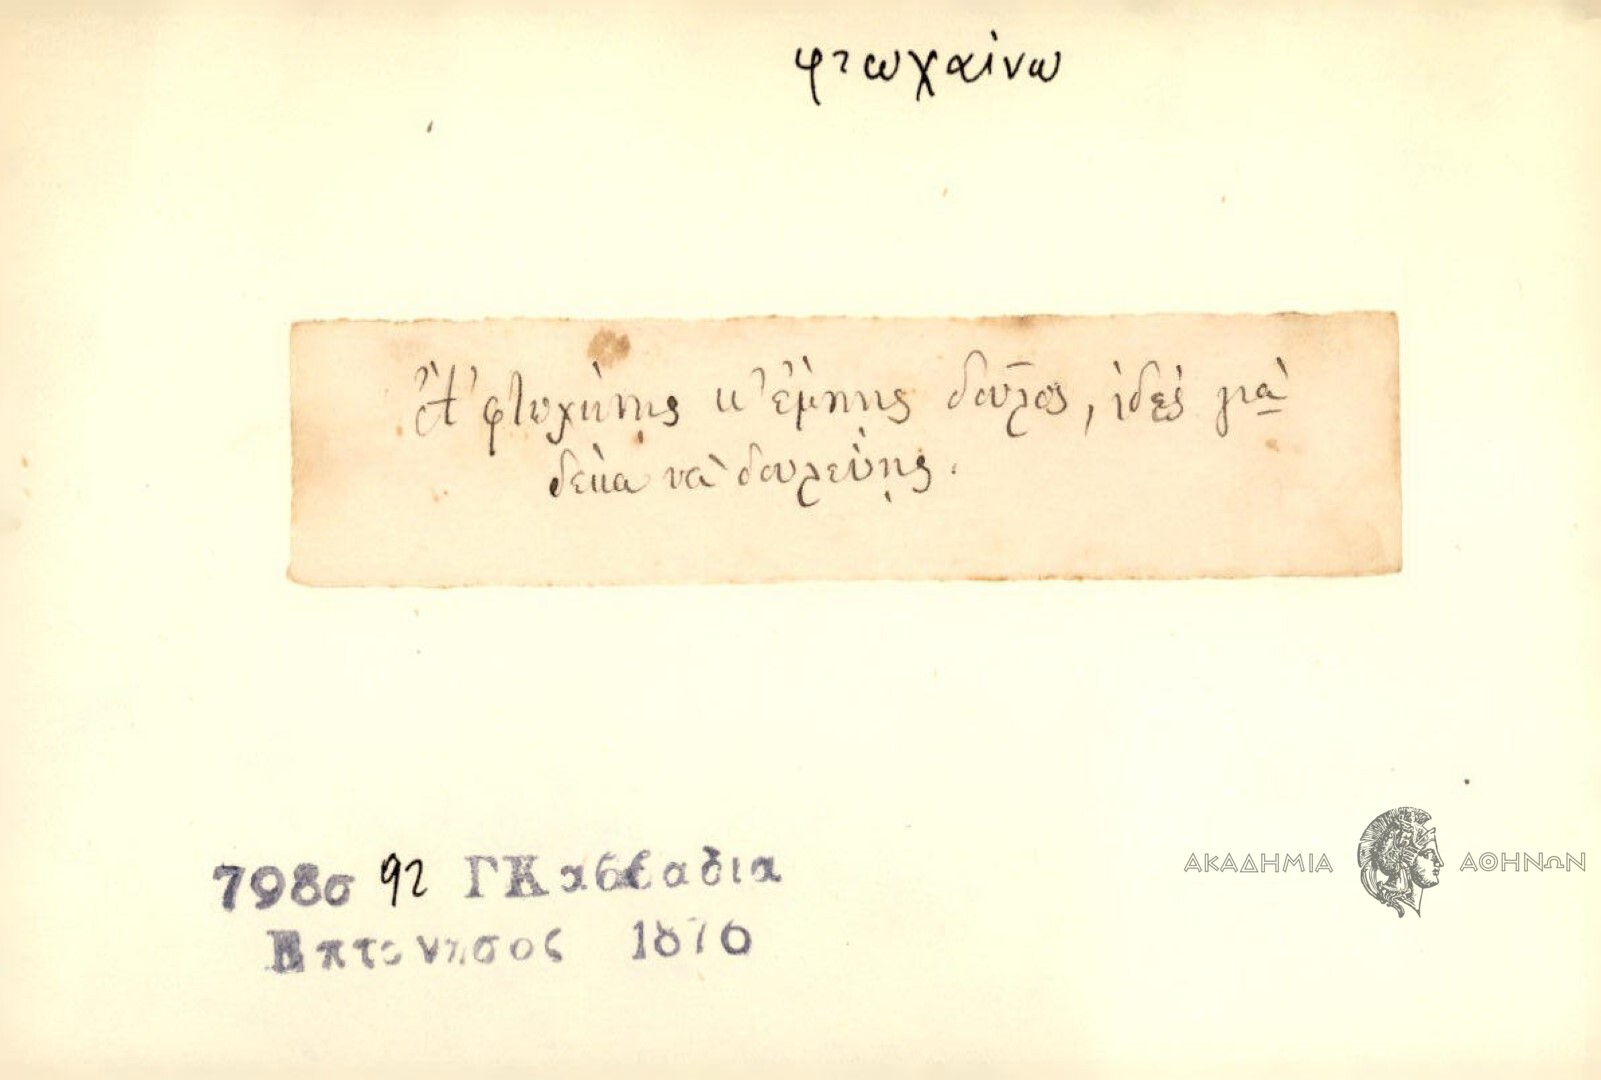 φτωχαίνω
Ἂ φτυχύνῃς κ' ἐμπῇς δοῦλος, ἰδὲς γιὰ
δέκα νὰ δουλεύῃς.
798σ 92 ΓΚαββαδια
Επτανησος 1876
ΑΚΑΔΗΜΙΑ ΑΘΗΝΩΝ